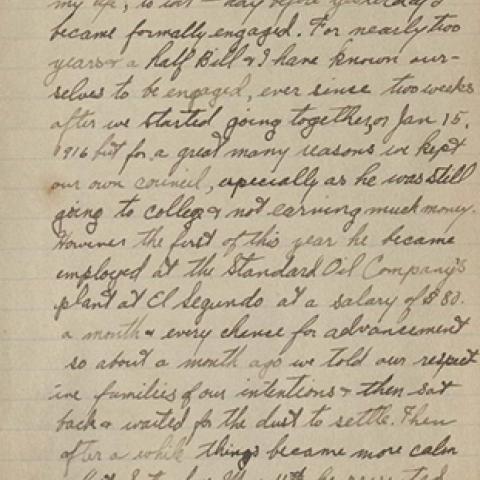 my life, to wit - day before yesterday I
became formally engaged. For nearly two
years & a half Bill & I have known our-
selves to be engaged, ever since two weeks
after we started going together, or Jan 15,
1916 but for a great many reasons we kept
our own council, especially as he was still
going to college & not earning much money.
However the first of this year he became
employed at the Standard Oil Company's
plant at El Segundo at a salary of $80.
a month & every chance for advancement
so about a month ago we told our respect
ive families of our intentions & then sat
back & waited for the dust to settle. Then
after a while things became more calm